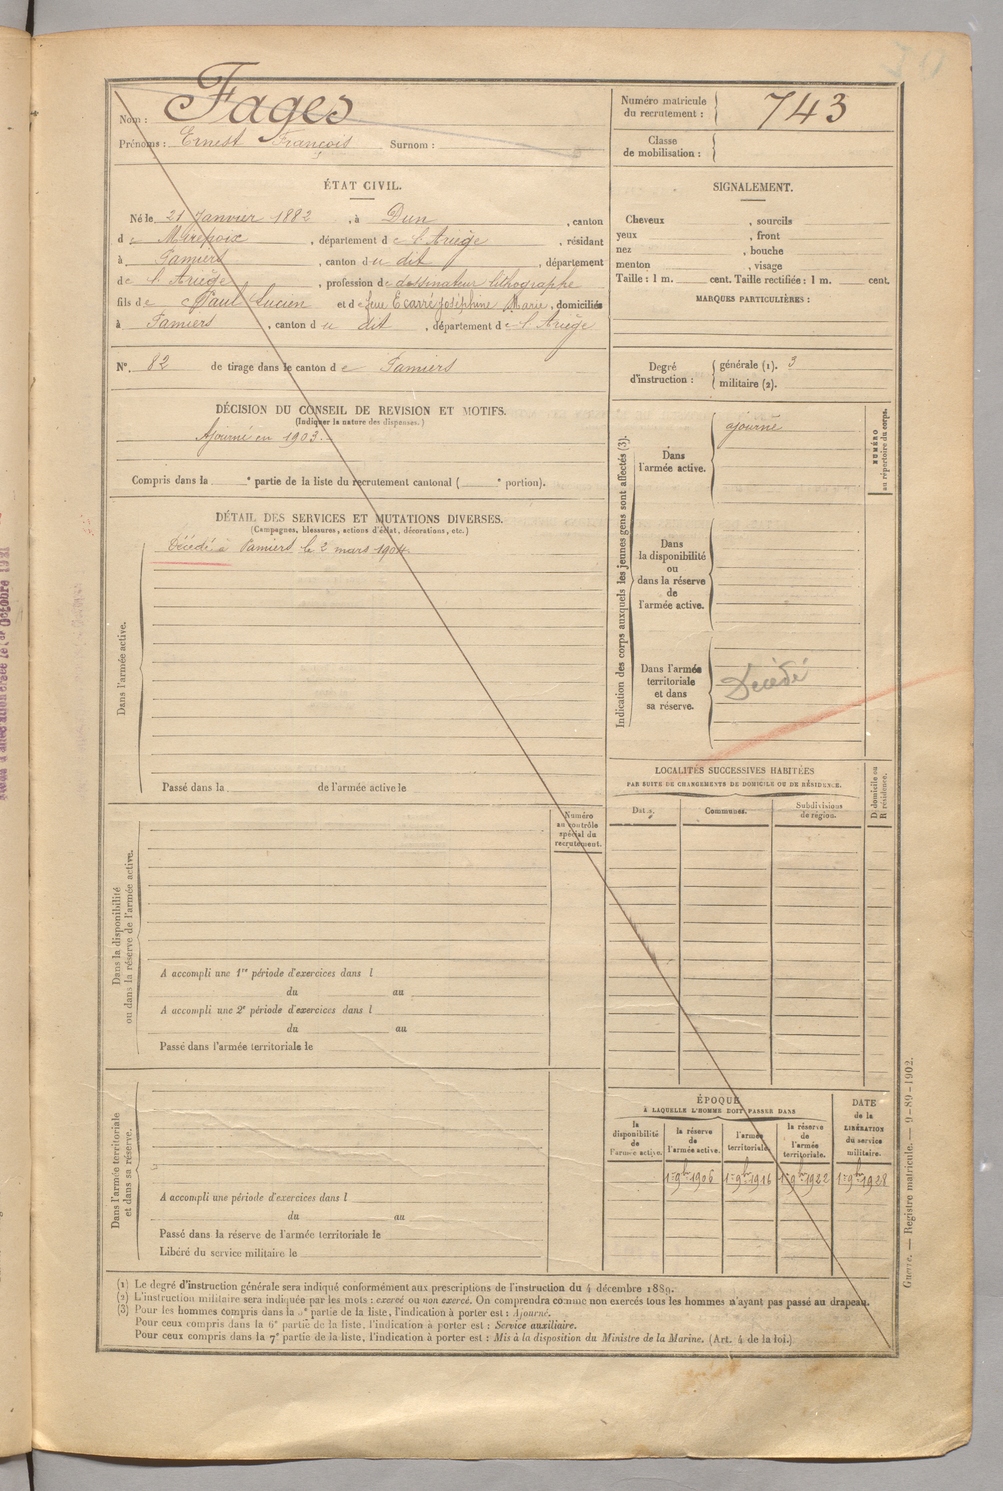 Nom : Fages
Prénoms : Ernest François Surnom :
Numéro matricule du recrutement : 743
Classe de mobilisation :
ÉTAT CIVIL.
Né le 21 Janvier 1882, à Dun, canton
de Mirepoix, département de l'Ariège, résidant
à Pamiers, canton du dit, département
de l'Ariège, profession de dessinateur lithographe
fils de Paul Lucien et de feue Escarré Joséphine Marie, domiciliés
à Pamiers, canton du dit, département de l'Ariège
N° 82 de tirage dans le canton de Pamiers
SIGNALEMENT.
Cheveux , sourcils
yeux , front
nez , bouche
menton , visage
Taille : 1 m. cent. Taille rectifiée : 1 m. cent.
MARQUES PARTICULIÈRES :
Degré d'instruction : générale (1). 3
militaire (2).
DÉCISION DU CONSEIL DE REVISION ET MOTIFS.
(Indiquer la nature des dispenses.)
Ajourné en 1903.
Compris dans la e partie de la liste du recrutement cantonal ( e portion).
DÉTAIL DES SERVICES ET MUTATIONS DIVERSES.
(Campagnes, blessures, actions d'éclat, décorations, etc.)
Dans l'armée active.
Décédé à Pamiers le 2 mars 1904.
Passé dans la de l'armée active le
Indication des corps auxquels les jeunes gens sont affectés (3).
Dans l'armée active.
ajourné
NUMÉRO au répertoire du corps.
Dans la disponibilité ou dans la réserve de l'armée active.
Dans l'armée territoriale et dans sa réserve.
Décédé
LOCALITÉS SUCCESSIVES HABITÉES
PAR SUITE DE CHANGEMENTS DE DOMICILE OU DE RÉSIDENCE.
Dates. Communes. Subdivisions de région. D. domicile ou R. résidence.
Numéro au contrôle spécial du recrutement.
Dans la disponibilité ou dans la réserve de l'armée active.
A accompli une 1re période d'exercices dans l
du au
A accompli une 2e période d'exercices dans l
du au
Passé dans l'armée territoriale le
Dans l'armée territoriale et dans sa réserve.
A accompli une période d'exercices dans l
du au
Passé dans la réserve de l'armée territoriale le
Libéré du service militaire le
ÉPOQUE
À LAQUELLE L'HOMME DOIT PASSER DANS
la disponibilité de l'armée active.
la réserve de l'armée active.
l'armée territoriale.
la réserve de l'armée territoriale.
DATE de la LIBÉRATION du service militaire.
1er 9bre 1906 1er 9bre 1916 1er 9bre 1922 1er 9bre 1928
(1) Le degré d'instruction générale sera indiqué conformément aux prescriptions de l'instruction du 4 décembre 1889.
(2) L'instruction militaire sera indiquée par les mots : exercé ou non exercé. On comprendra comme non exercés tous les hommes n'ayant pas passé au drapeau.
(3) Pour les hommes compris dans la 5e partie de la liste, l'indication à porter est : Ajourné.
Pour ceux compris dans la 6e partie de la liste, l'indication à porter est : Service auxiliaire.
Pour ceux compris dans la 7e partie de la liste, l'indication à porter est : Mis à la disposition du Ministre de la Marine. (Art. 4 de la loi.)
Guerre. — Registre matricule. — 9-89-1902.